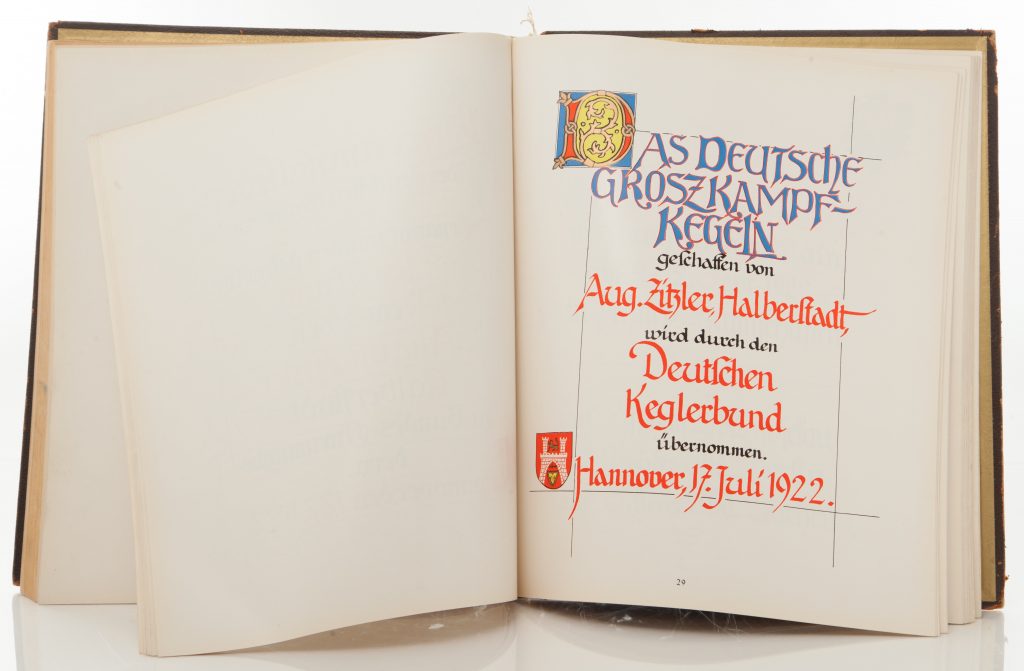 DAS DEUTSCHE
GROSZKAMPF-
KEGELN
geſchaffen von
Aug. Zitzler, Halberſtadt,
wird durch den
Deutſchen
Keglerbund
übernommen.
Hannover, 17. Juli 1922.
29